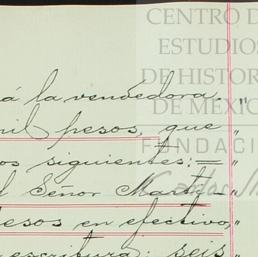 CENTRO D
ESTUDIOS
DE HISTOR
DE MEXIC
FUNDACI
á la vendedora.
mil pesos, que
os siguientes:=
l Señor
esos en efectivo,
escritura: seis